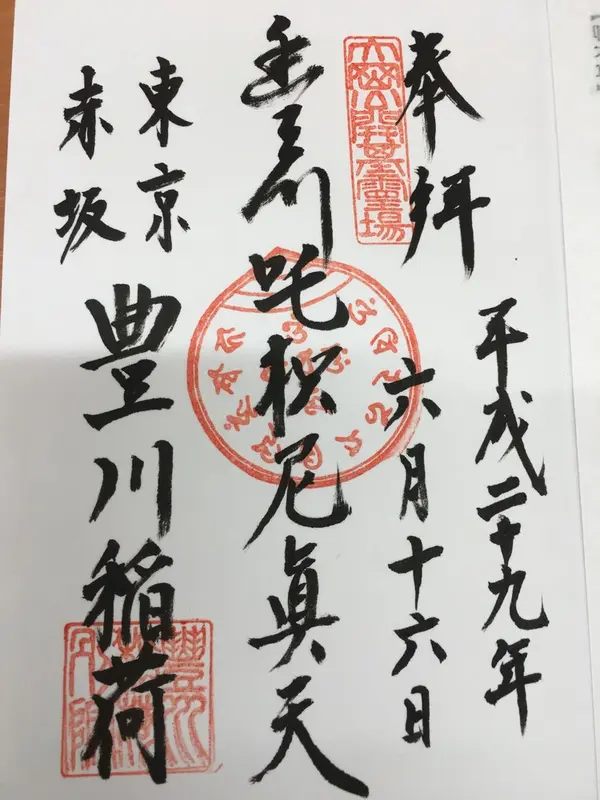 平成二十九年
奉拝
六月十六日
豊川吒枳尼眞天
東京
赤坂
豊川稲荷